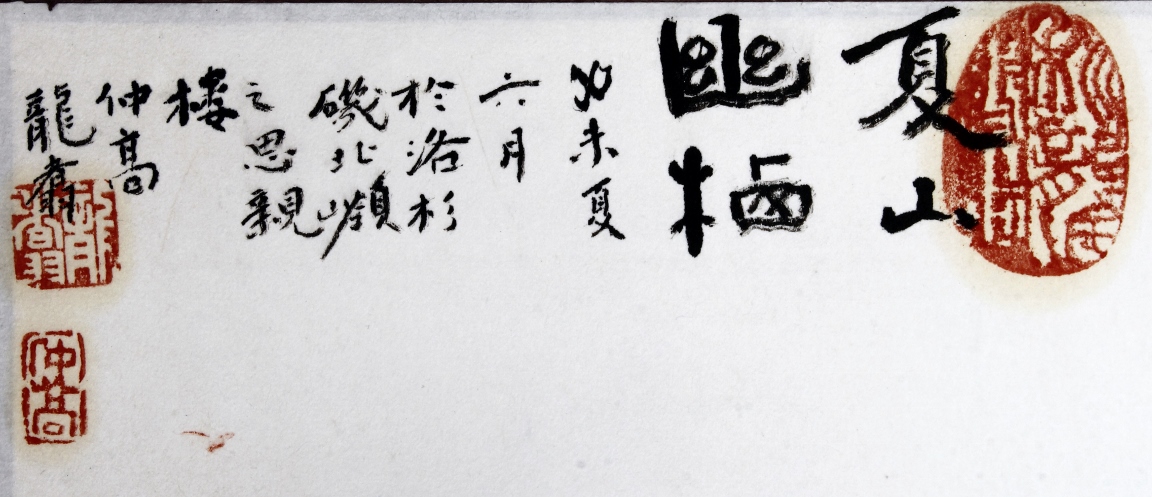 夏山
幽栖
癸未夏
六月
於洛杉
磯北嶺
之思親
樓
仲高
龍
仲高